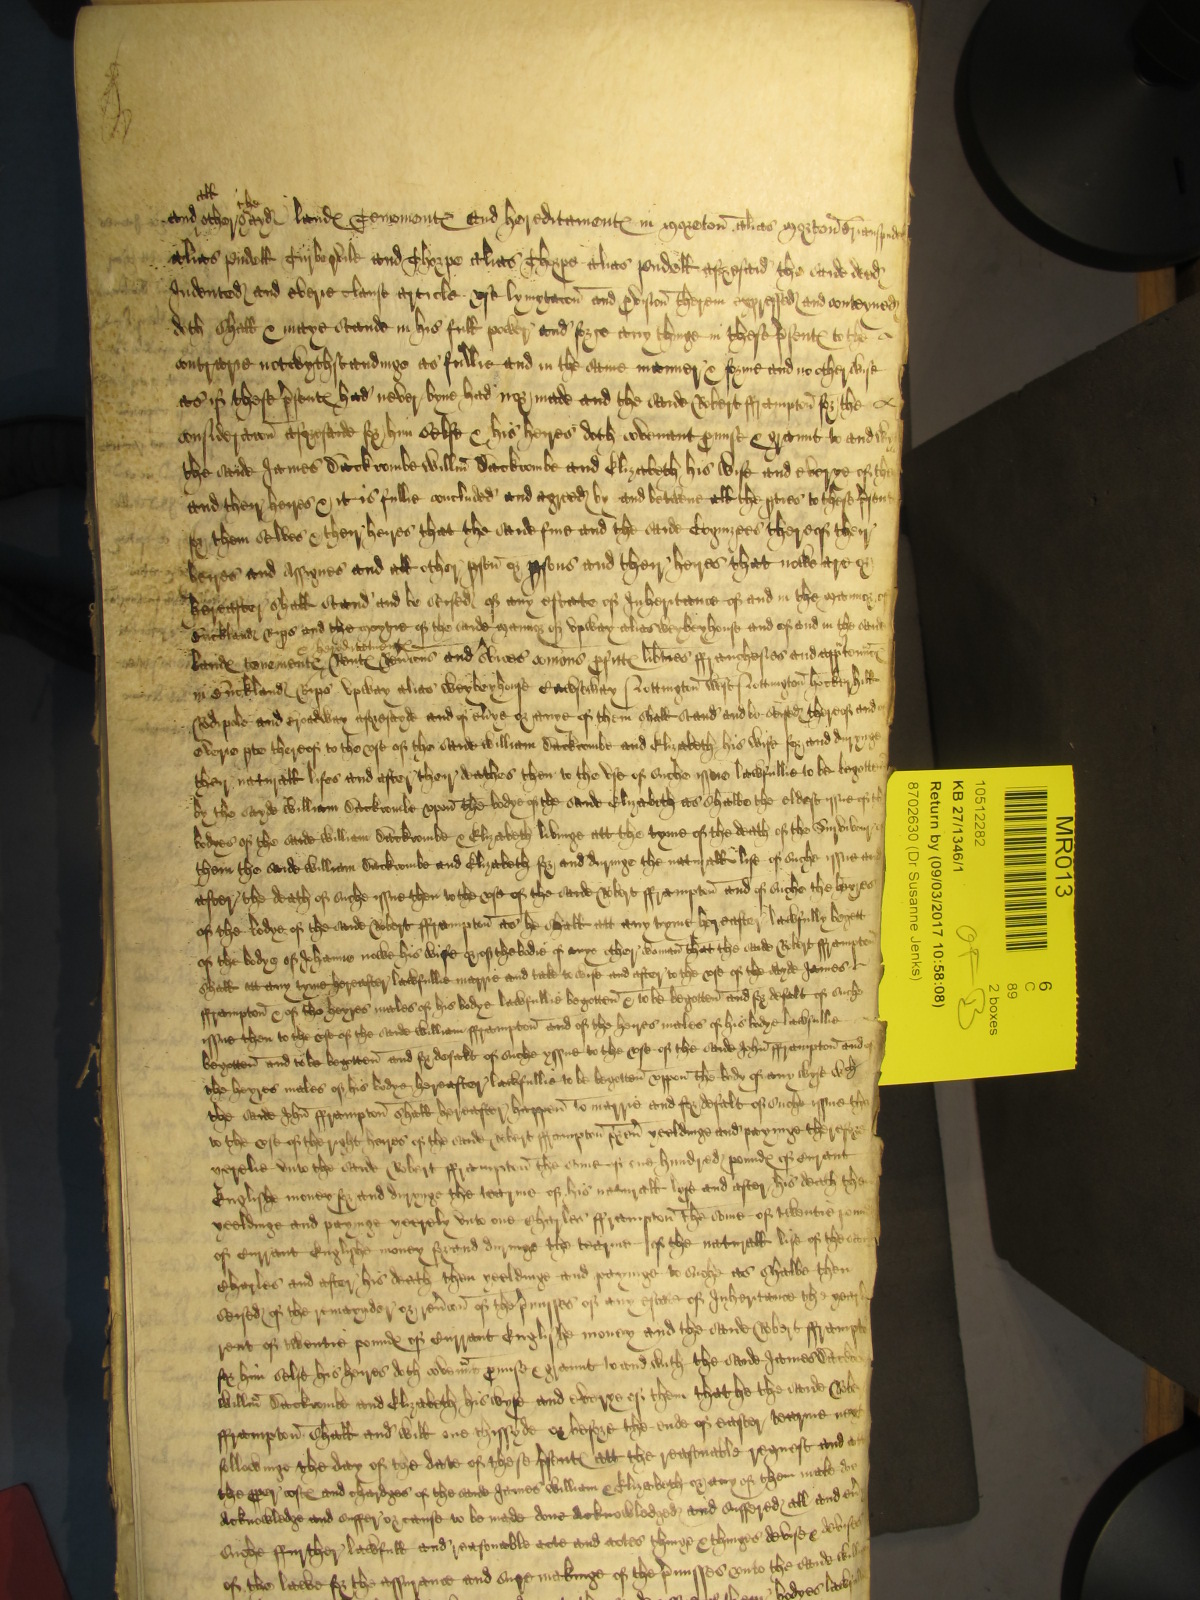 all the
and other sayd landes Tenementes and hereditamentes in Moreton alias
alias Pudell Turbervile and Thorpe alias Thrope alias Pudell aforesaid the saide dede
Indented and everie clause article use lymytacon and provision therein expressed and conteyned
doth shall & maye stande in his full power and force any thinge in these presentes to the
contrarie notwythstandinge as fullie and in the same manner & forme and no other wise
as if these presentes had never byne had nor made and the saide Robert Frampton for the
consideracon aforesaide for him selfe & his heyres doth covenant promise & graunt to and with
the saide James Dackcombe Willm Dackcombe and Elizabeth his wife and everye of them
and their heyres & it is fullie concluded and agreed by and betwene all the parties to these presentes
for them selves & their heyres that the saide fine and the saide Cognizees thereof their
heyres and assignes and all other person or persons and their heyres that nowe are or
hereafter shall stand and be seised of any estate of Inheritance of and in the Mannor of
Buckland Rips and the moytie of the saide mannor of Upway alias Weybeyhouse and of and in the saide
hereditamentes
landes tenementes Rentes Revercons and services comons profittes liberties ffraunchesies and
in Buckland Rips Upway alias Weybeyhouse Nottington West Nottington
Radipole and Broadway aforesayde and of everye or anye of them shall stand and be seised thereof and of
everie parte thereof to the use of the saide William Dackcombe and Elizabeth his wife for and duringe
their naturall lifes and after their deathes then to the use of suche issue lawfullie to be begotten
by the sayde William Dackcombe upon the bodye of the saide Elizabeth as shalbe the eldest issue of the
bodyes of the saide William Dackcombe & Elizabeth livinge att the tyme of the death of the Survivour of
them the saide William Dackcombe and Elizabeth for and duringe the naturall life of suche issue and
after the death of suche issue then to the use of the saide Robert fframpton and of suche the heyres
of the bodye of the saide Robert fframpton as he shall att any tyme hereafter lawfully begett
of the bodye of Johanne nowe his wife or of the bodie of anye other woman that the saide Robert fframpton
shall att any tyme hereafter lawfullie marrie and take to wife and after to the use of the sayde James
fframpton & of the heyres males of his bodye lawfullie begotten & to be begotten and for defalt of suche
issue then to the use of the saide William fframpton and of the heyres males of his bodye lawfullie
begotten and to be begotten and for defalt of suche yssue to the use of the saide John fframpton and of
the heyres males of his bodye hereafter lawfullie to be begotten uppon the body of any wyfe wch
the saide John fframpton shall hereafter happen to marrie and for defalt of suche issue then
to the use of the right heyres of the saide Robert fframpton yeeldinge and payinge therefore
yerelie unto the saide Robert fframpton the some of one hundred poundes of currant
Englishe money for and duringe the tearme of his naturall lyfe and after his death then
yeeldinge and payinge yeerely unto one Charles fframpton the some of twentie poundes
of currant Englishe money for and duringe the tearme of the naturall life of the saide
Charles and after his death then yeeldinge and payinge to suche as shalbe then
seised of the remaynder or revercon of the premisses of any estate of Inheritance the yearly
rent of twentie poundes of currant Englishe money and the saide Robert fframpton
for him selfe his heyres doth covenant promise & graunt to and with the saide James Dackcombe
Willm Dackcombe and Elizabeth his wyfe and everye of them that he the saide Robert
fframpton shall and will one thissyde or before the ende of easter tearme next
followinge the day of the date of these presentes att the reasonable request and att
the proper costes and chardges of the saide James William & Elizabeth or any of them make doe
acknowledge and suffer or cause to be made done acknowledged and suffered all and every
suche ffurther lawfull and reasonable acte and actes thinge & thinges devise & devises
of the lawe for the assurance and sure makinge of the premisses unto the saide Willm
bodyes
MR013
6
C
89
2 boxes
10512282
KB 27/1346/1
Return by (09/03/2017 10:58:08)
8702630 (Dr Susanne Jenks)